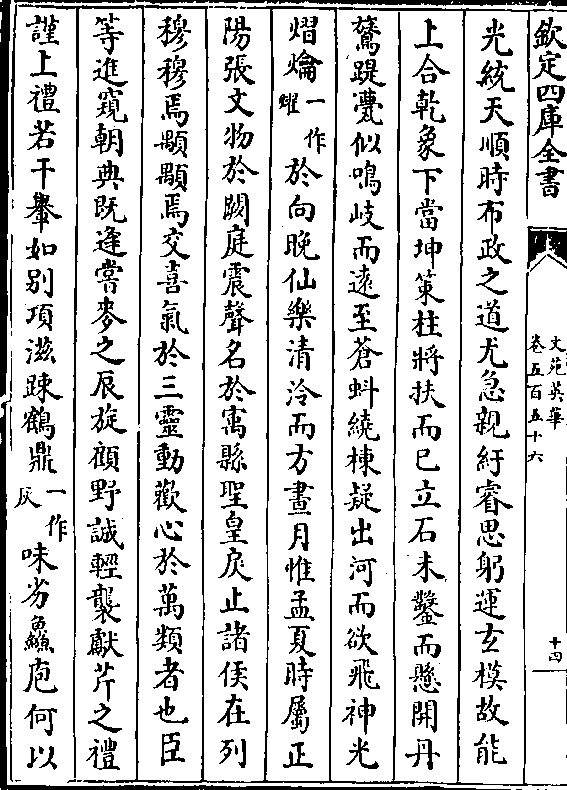 欽定四庫全書
文苑英華
卷五百五十六
十四
光統天順時布政之道尤急親紆睿思躬運玄模故能
上合乾象下當坤策柱將扶而已立石未鑿而懸開丹
鶱踶甍似鳴岐而遠至蒼蚪繞棟疑出河而欲飛神光
熠爚一作耀於向晚仙樂清泠而方晝月惟孟夏時屬正
陽張文物於闕庭震聲名於寓縣聖皇戾止諸侯在列
穆穆焉顒顒焉交喜氣於三靈動歡心於萬類者也臣
等進窺朝典既逢嘗麥之辰旋顧野誠輕襲獻芹之禮
謹上禮若干轝如别項滋踈鶴鼎一作灰味劣鱻庖何以